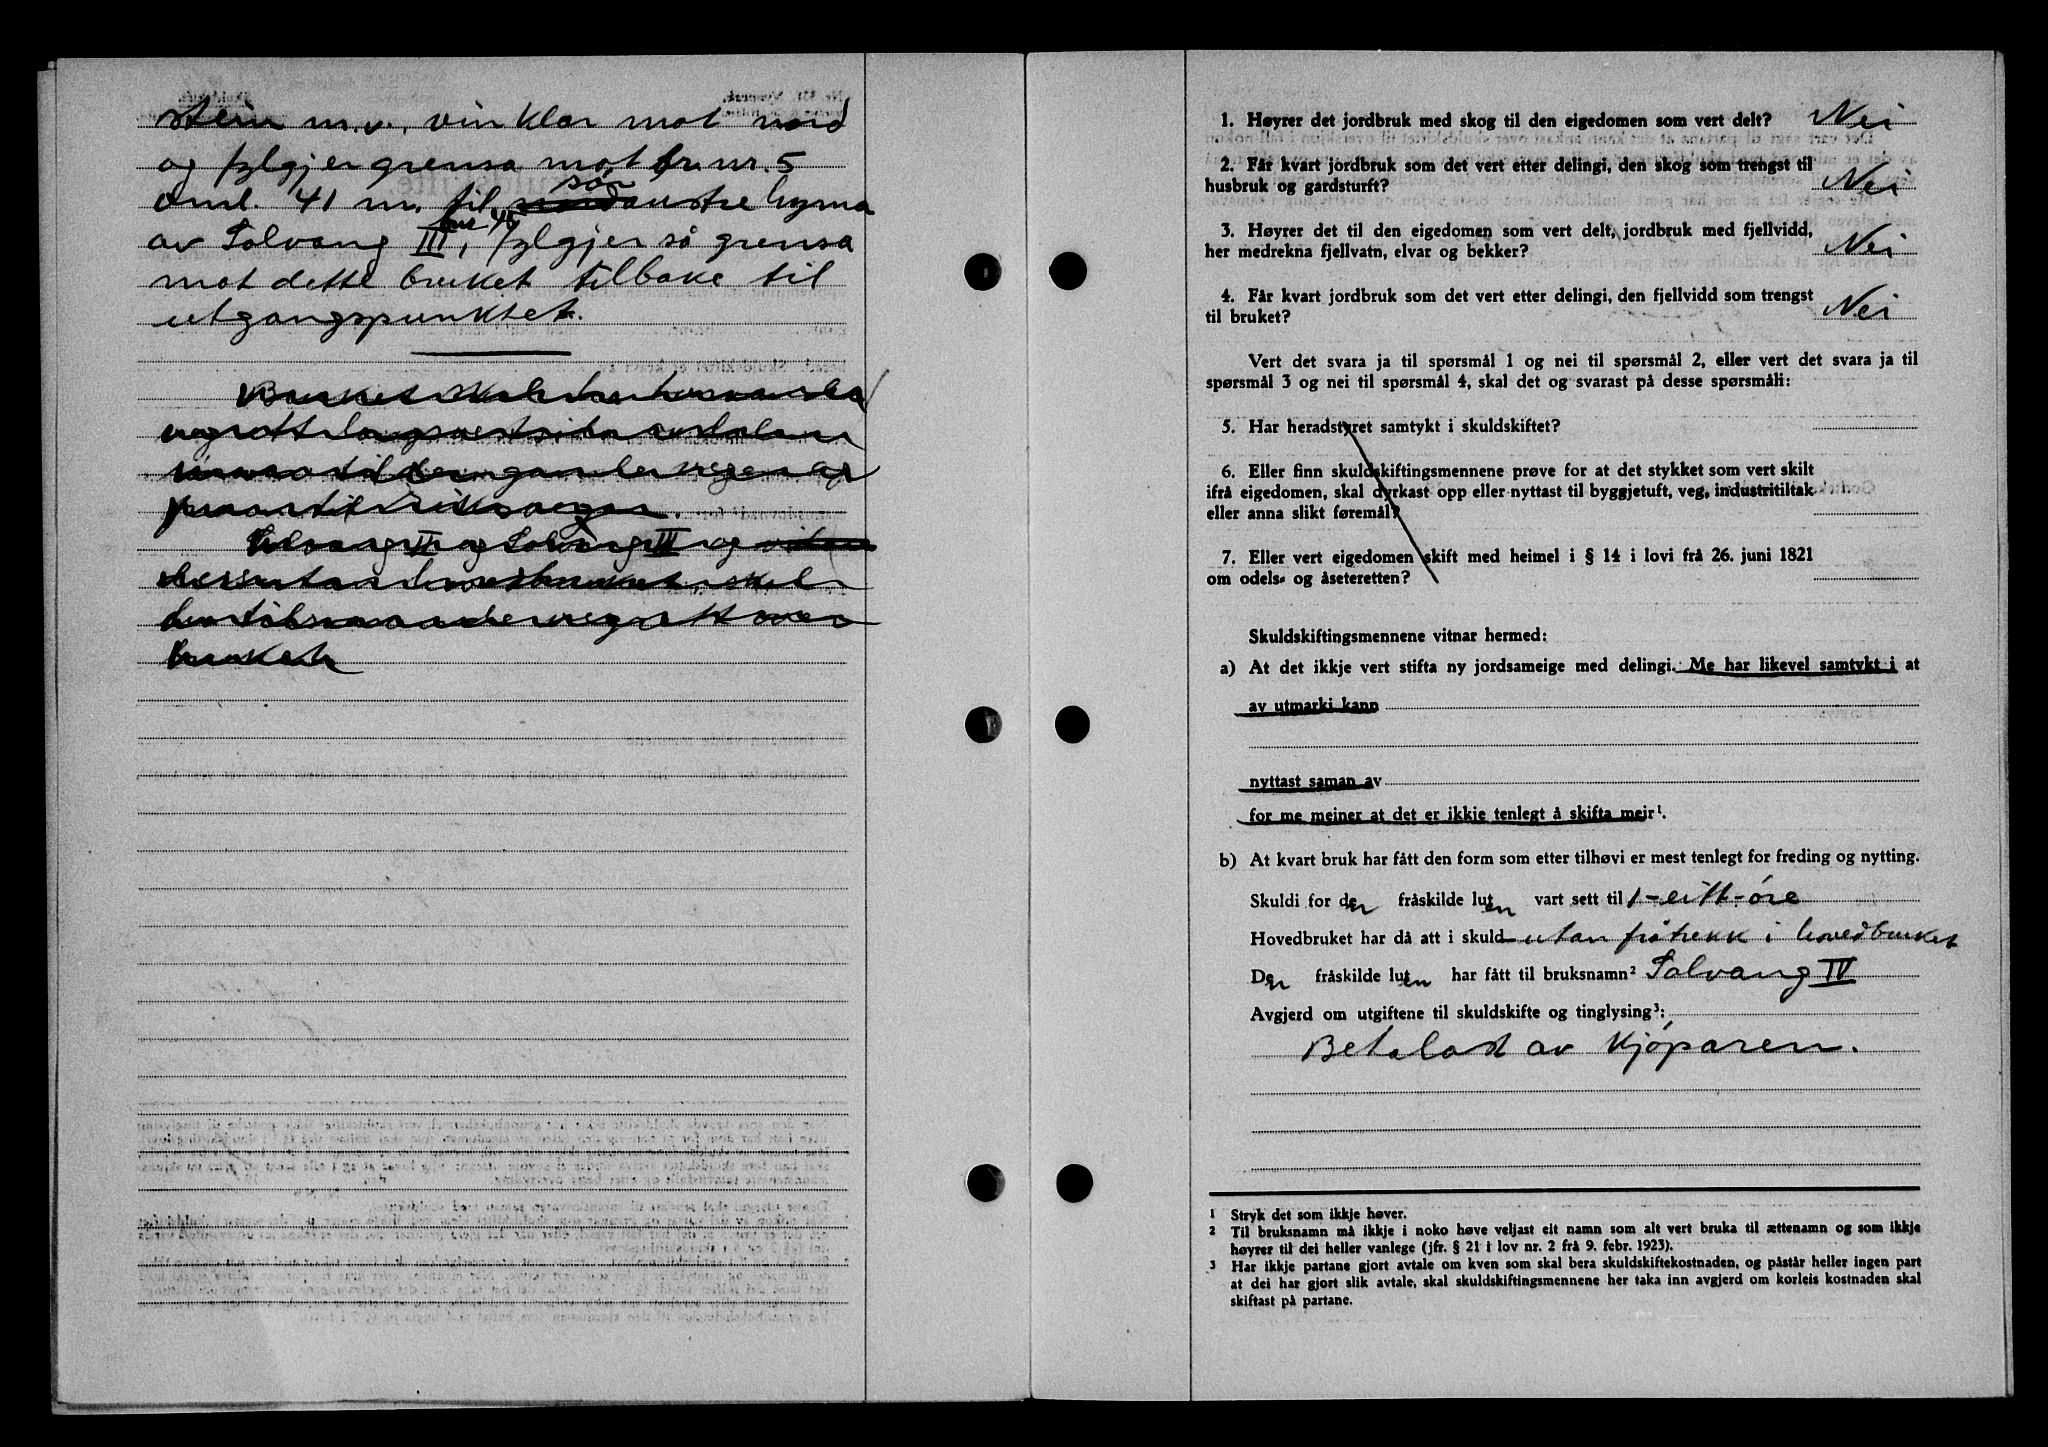 stein m.v. vinklar mot nord
og fylgjer grensa mot br. nr. 5
oml. 41 m. til søraustre hyrna
av Solvang III, bnr 45, fylgjer så grensa
mot dette bruket tilbake til
utgangspunktet.
Bruket skal ha
vegrett langs vestsida
til den gamle vegen og
fram til Riksvegen.
Solvang II og Solvang III og
hovedbruket skal
vegrett over
bruket
1. Høyrer det jordbruk med skog til den eigedomen som vert delt? Nei
2. Får kvart jordbruk som det vert etter delingi, den skog som trengst til
husbruk og gardsturft? Nei
3. Høyrer det til den eigedomen som vert delt, jordbruk med fjellvidd,
her medrekna fjellvatn, elvar og bekker? Nei
4. Får kvart jordbruk som det vert etter delingi, den fjellvidd som trengst
til bruket? Nei
Vert det svara ja til spørsmål 1 og nei til spørsmål 2, eller vert det svara ja til
spørsmål 3 og nei til spørsmål 4, skal det og svarast på desse spørsmåli:
5. Har heradstyret samtykt i skuldskiftet?
6. Eller finn skuldskiftingsmennene prøve for at det stykket som vert skilt
ifrå eigedomen, skal dyrkast opp eller nyttast til byggjetuft, veg, industritiltak
eller anna slikt føremål?
7. Eller vert eigedomen skift med heimel i § 14 i lovi frå 26. juni 1821
om odels- og åseteretten?
Skuldskiftingsmennene vitnar hermed:
a) At det ikkje vert stifta ny jordsameige med delingi. Me har likevel samtykt i at
av utmarki kann
nyttast saman av
for me meiner at det er ikkje tenlegt å skifta meir¹.
b) At kvart bruk har fått den form som etter tilhøvi er mest tenlegt for freding og nytting.
Skuldi for den fråskilde luten vart sett til 1-eitt-øre
Hovedbruket har då att i skuld utan fråtrekk i hovedbruket
Den fråskilde luten har fått til bruksnamn² Solvang IV
Avgjerd om utgiftene til skuldskifte og tinglysing³:
Betalast av kjøparen.
1 Stryk det som ikkje høver.
2 Til bruksnamn må ikkje i noko høve veljast eit namn som alt vert bruka til ættenamn og som ikkje
høyrer til dei heller vanlege (jfr. § 21 i lov nr. 2 frå 9. febr. 1923).
3 Har ikkje partane gjort avtale om kven som skal bera skuldskiftekostnaden, og påstår heller ingen part
at dei har gjort slik avtale, skal skuldskiftingsmennene her taka inn avgjerd om korleis kostnaden skal
skiftast på partane.